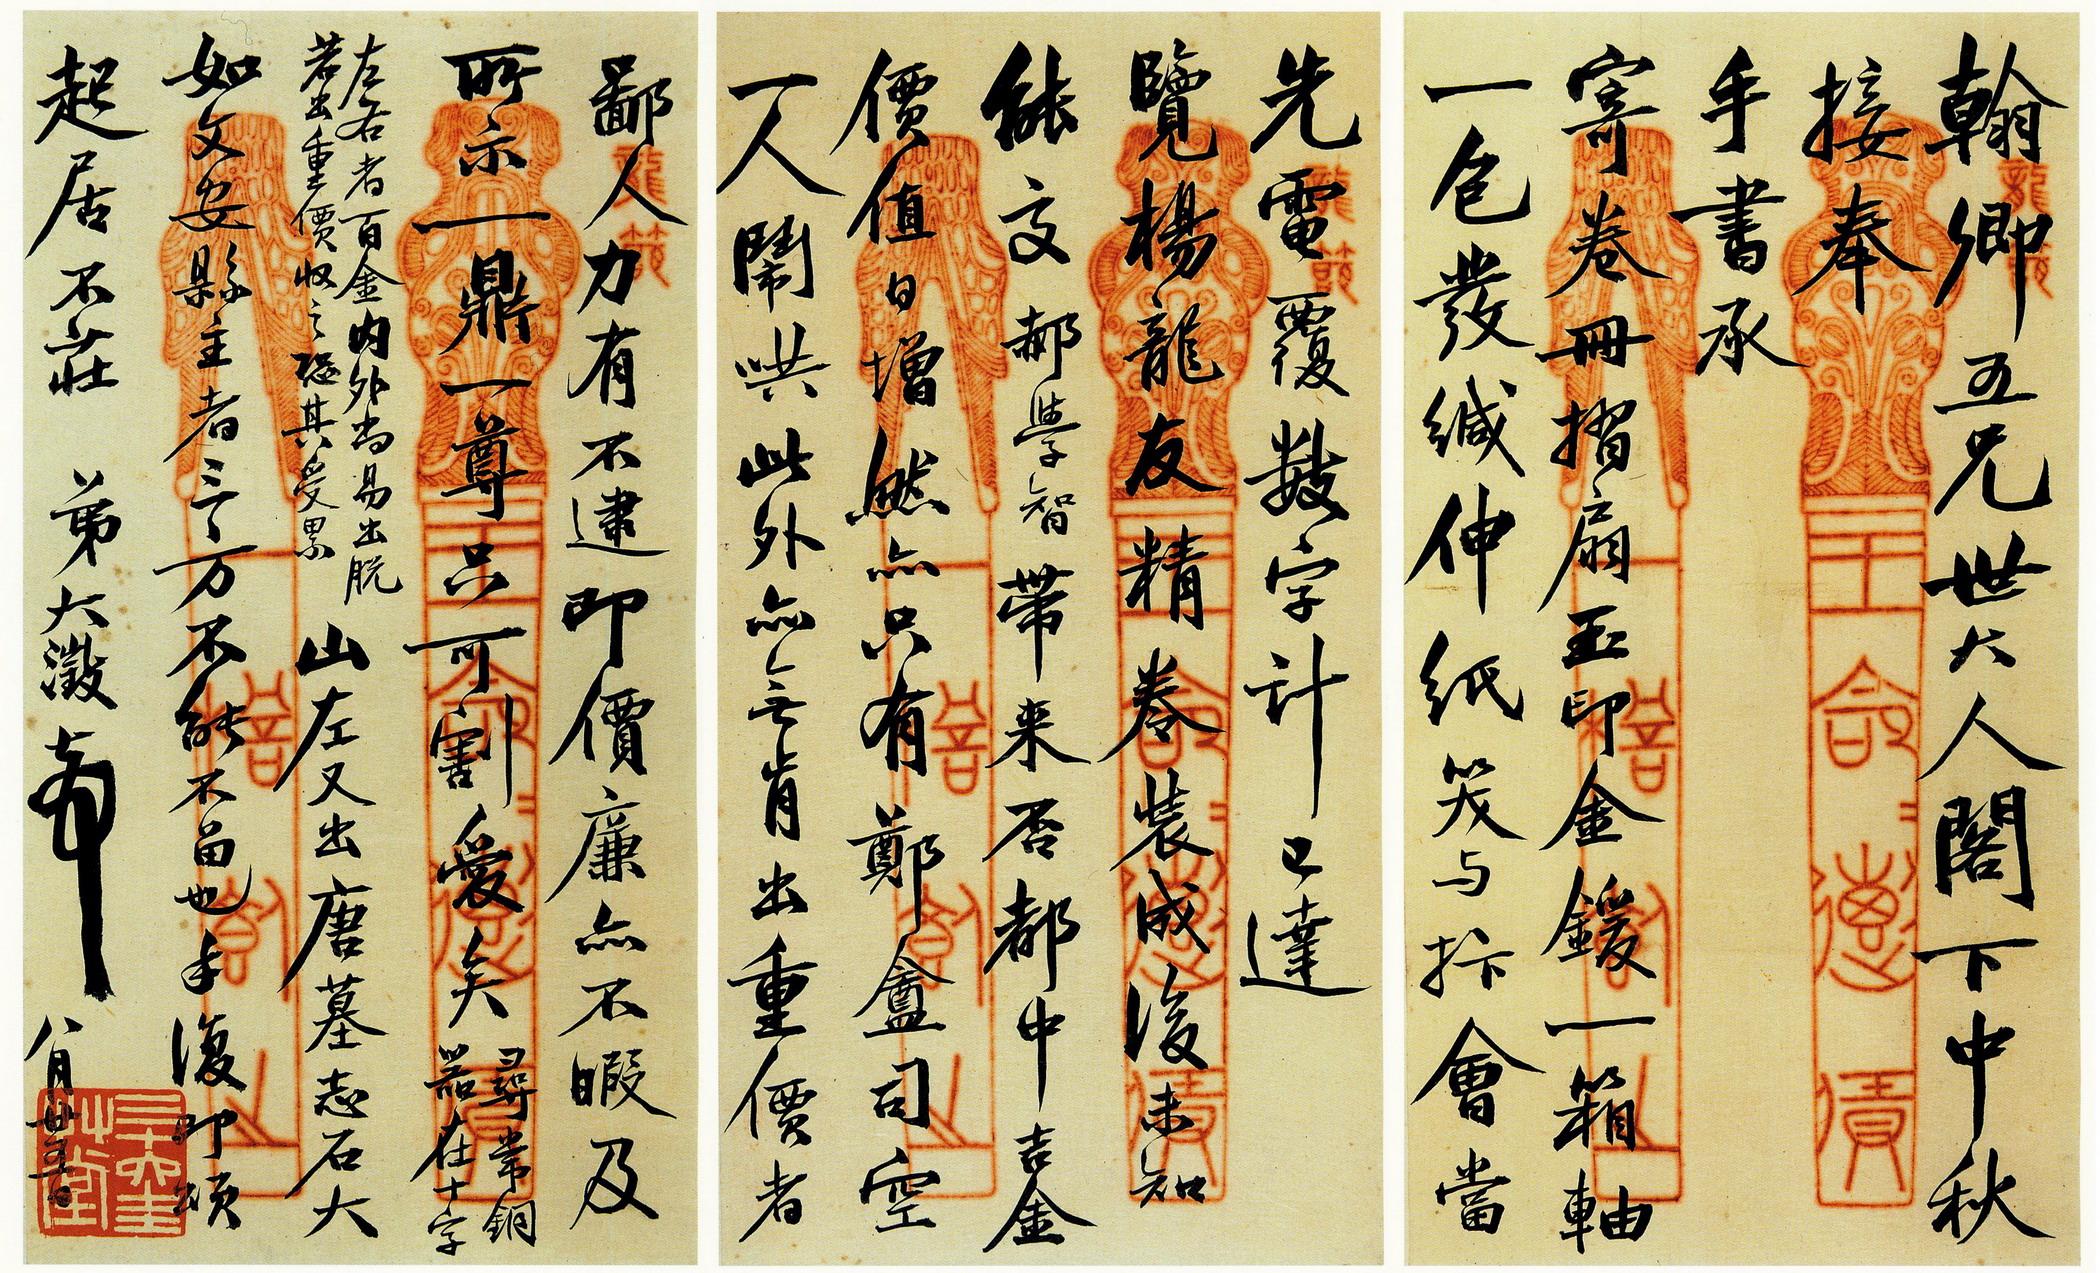 翰卿五兄世大人閣下中秋
接奉
手書承
寄卷冊摺扇玉印金鍰一箱軸
一包發緘伸紙笑与抃會當
先電覆數字計已達
覽楊龍友精卷裝成後未知
能交郝學智帶来否都中吉金
價值日增然亦只有鄭盦司空
一人鬧哄此外亦无肯出重價者
鄙人力有不逮即價廉亦不暇及
所示一鼎一尊只可割愛矣
尋常銅
器在十字
左右者百金内外尚易出脱
若出重價收之恐其受累
山左又出唐墓志石大
如文安縣主者三了万不能不畱也手復即頌
起居不莊 弟大澂
八月廿五日